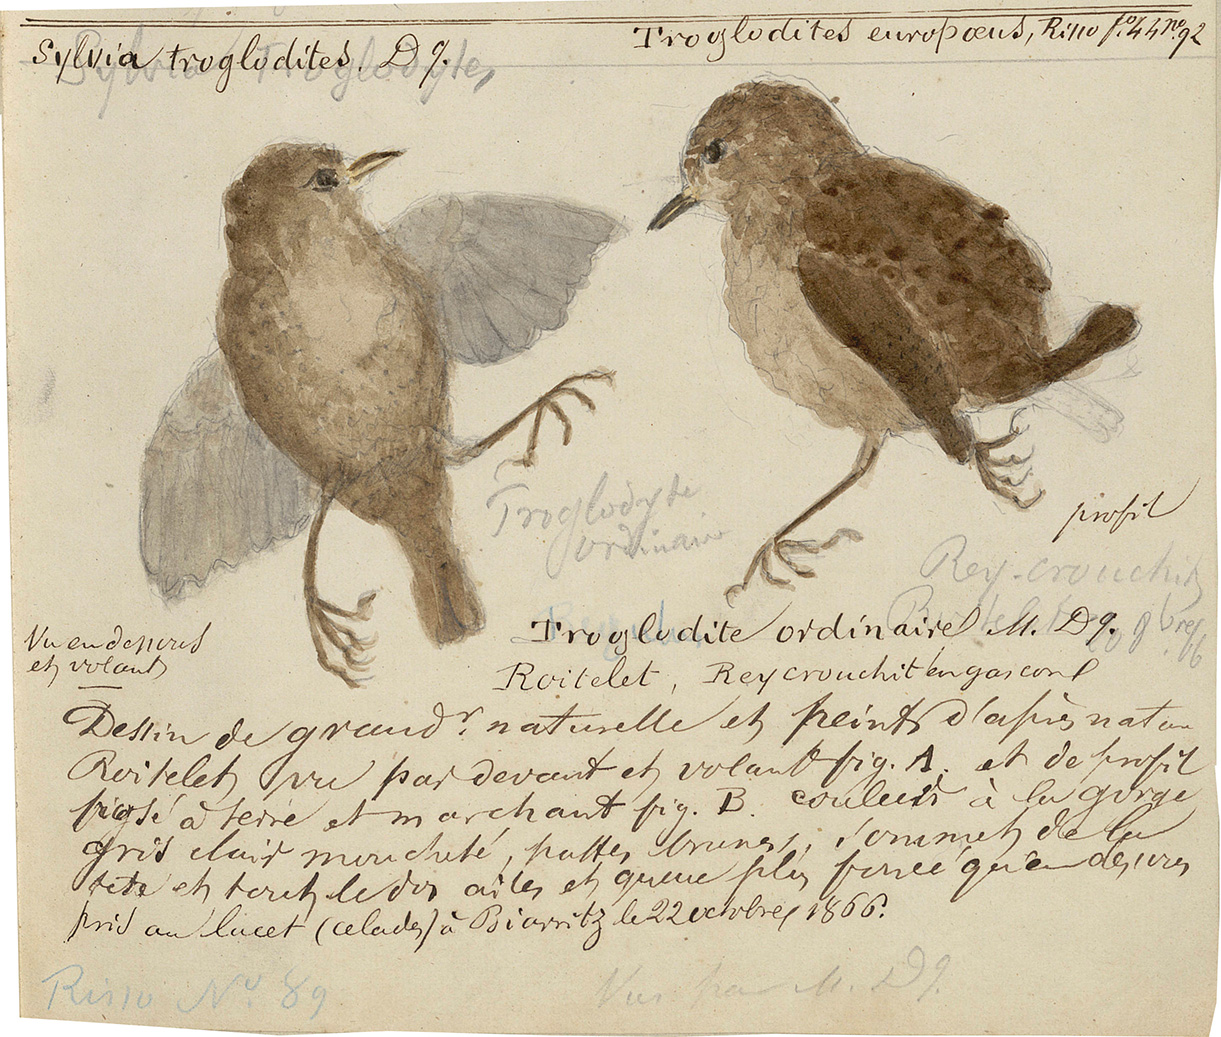 Sylvia troglodites. Dg.
Troglodites europœus, Risso fo. 44 no. 92
Sylvia Troglodytes
Troglodyte
ordinaire
profil
Rey-crouchit
8bre
66
Vu en dessous
et volant
Troglodite ordinaire M. Dg.
Roitelet, Reycrouchit en gascon
Dessin de grandr. naturelle et peint d'après natur
Roitelet vu par devant et volant fig. A. et de profil
à terre et marchant fig. B. couleur à la gorge
gris clair moucheté, pattes brunes, sommet de la
tête et tout le dos ailes et queue plus foncé qu'en dessous
pris au lacet (celades) à Biarritz le 22 octobre 1866.
Risso No. 89
Vus par M. Dg.